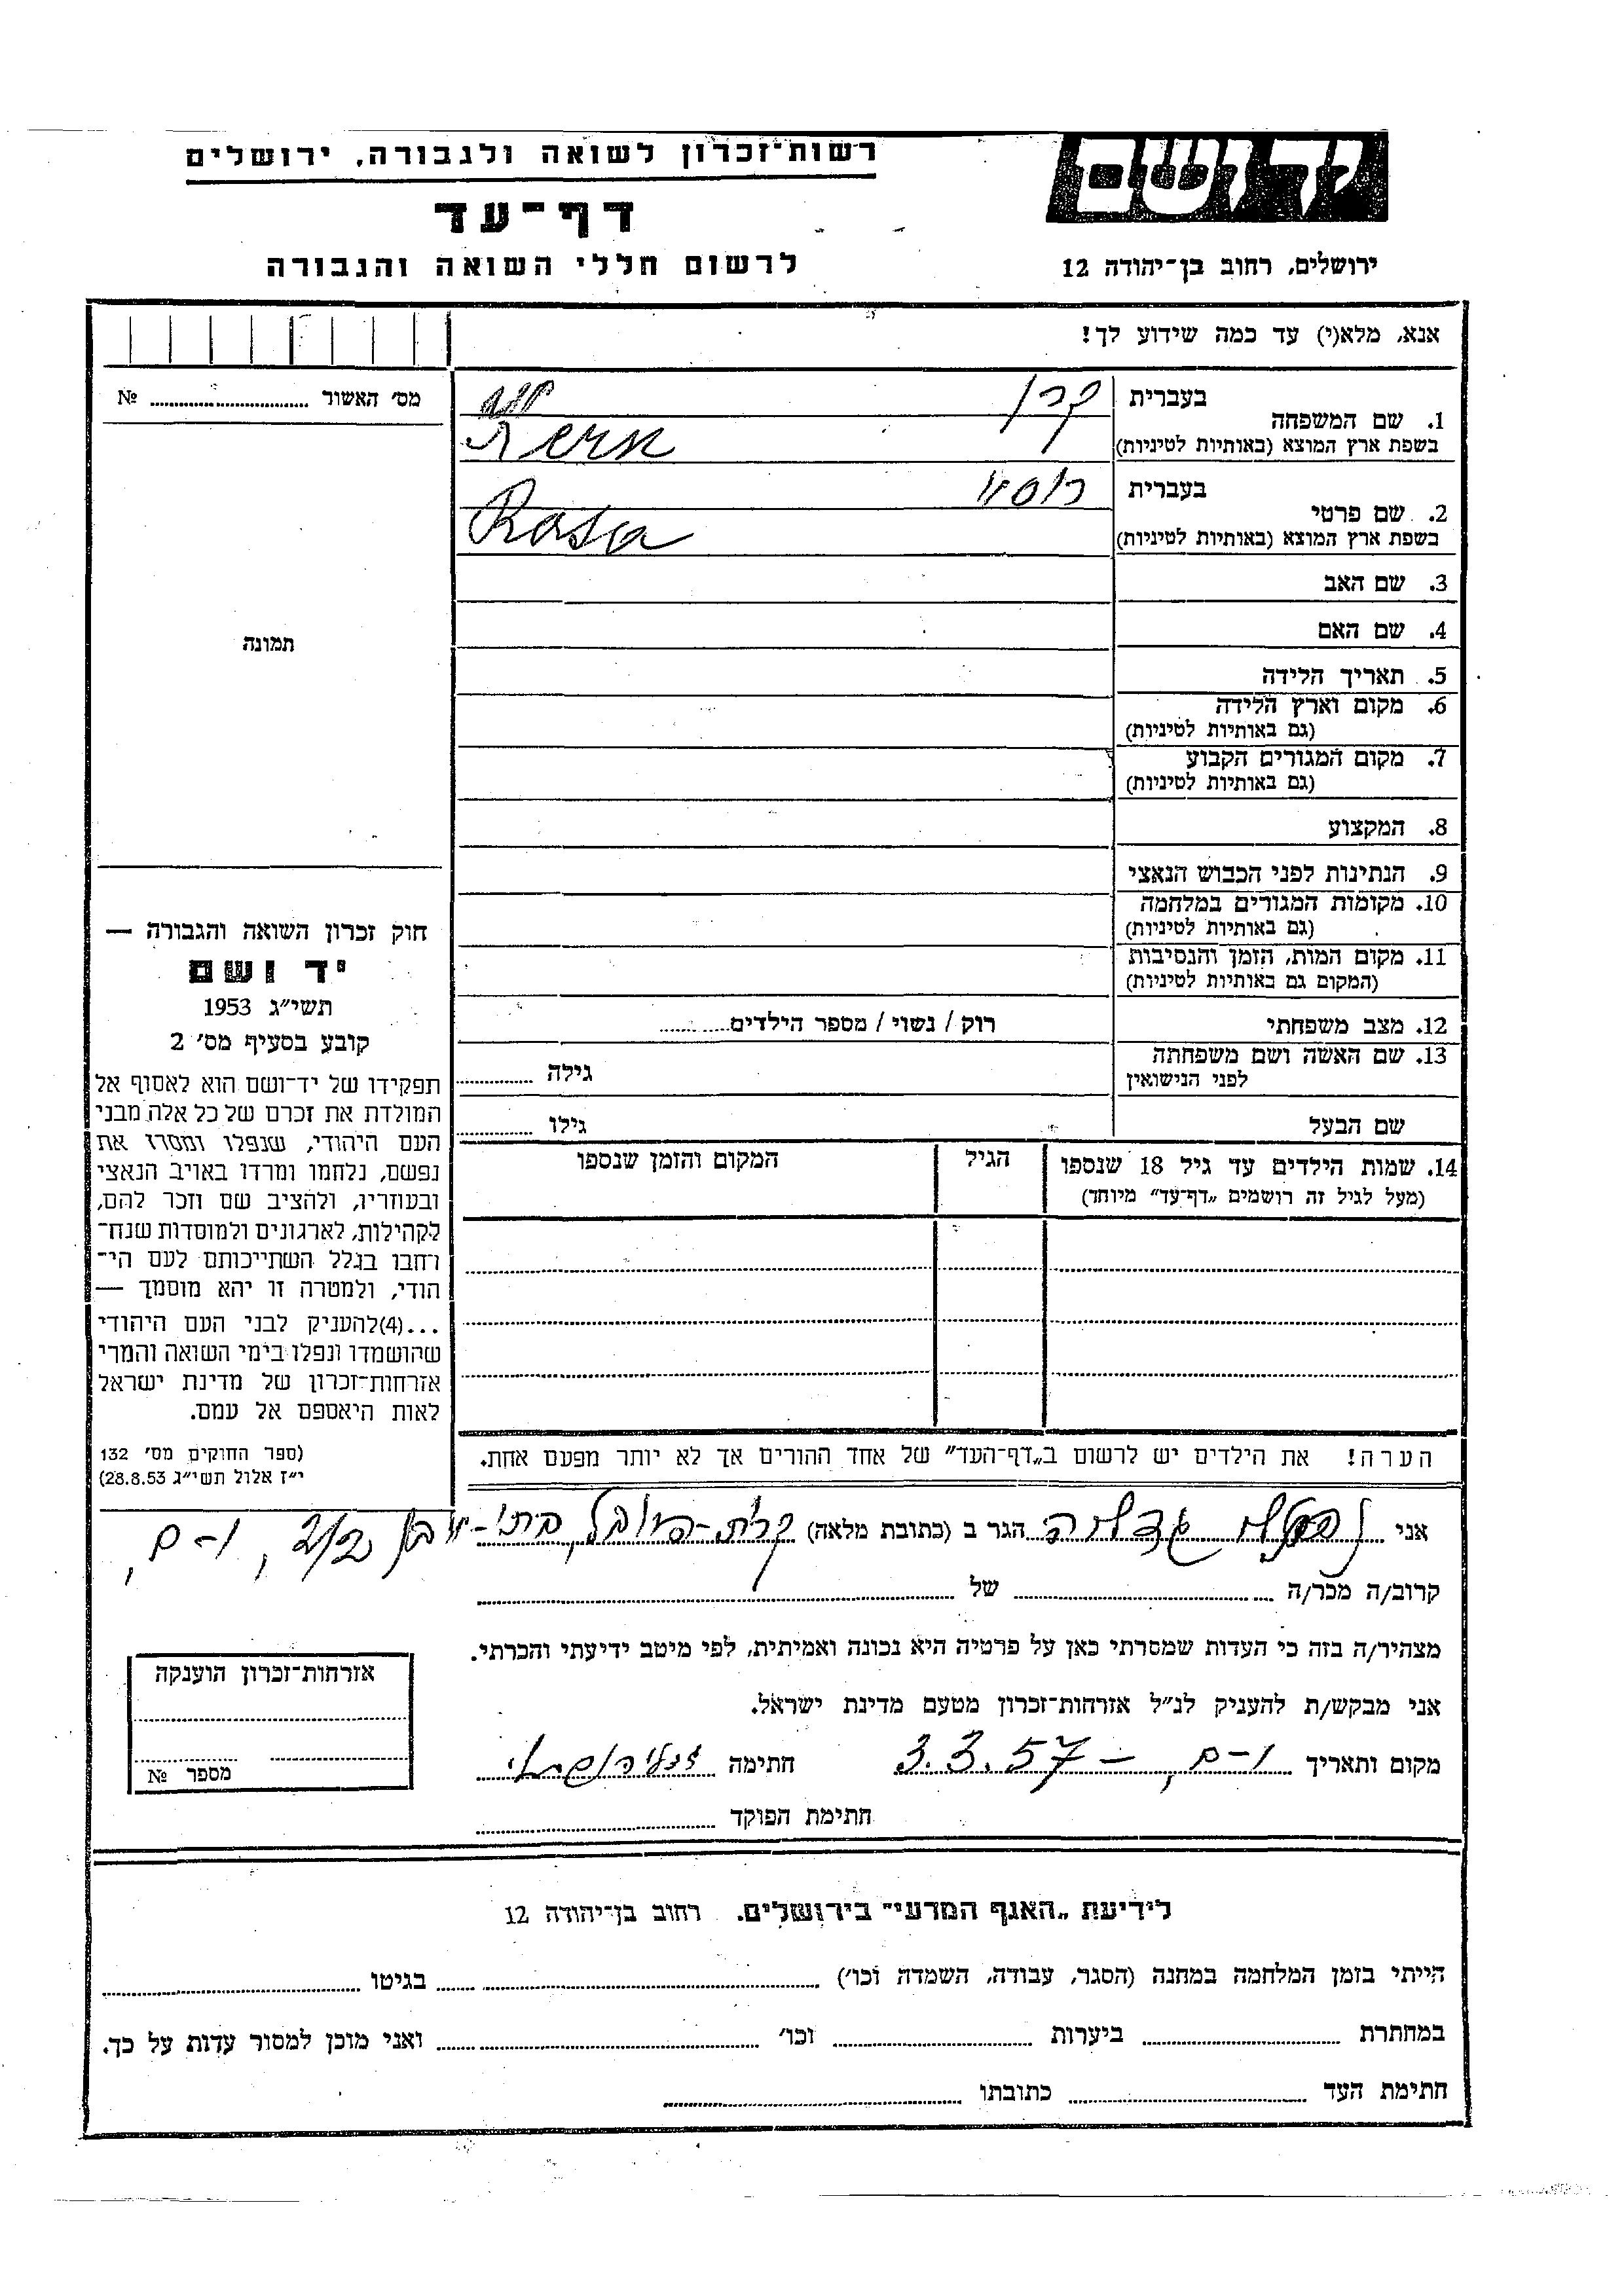 רשות־זכרון לשואה ולגבורה, ירושלים
יד ושם
דף־עד
לרשום חללי השואה והגבורה
ירושלים, רחוב בן־יהודה 12
אנא, מלא(י) עד כמה שידוע לך!
מס׳ האשור ........ №
1. שם המשפחה
בעברית קרן
בשפת ארץ המוצא (באותיות לטיניות) Kern
2. שם פרטי
בעברית רוסה
בשפת ארץ המוצא (באותיות לטיניות) Rosa
3. שם האב
4. שם האם
5. תאריך הלידה
6. מקום וארץ הלידה
(גם באותיות לטיניות)
7. מקום המגורים הקבוע
(גם באותיות לטיניות)
8. המקצוע
9. הנתינות לפני הכבוש הנאצי
10. מקומות המגורים במלחמה
(גם באותיות לטיניות)
11. מקום המות, הזמן והנסיבות
(המקום גם באותיות לטיניות)
12. מצב משפחתי רוק / נשוי / מספר הילדים........
13. שם האשה ושם משפחתה
לפני הנישואין גילה ........
שם הבעל גילו ........
14. שמות הילדים עד גיל 18 שנספו
(מעל לגיל זה רושמים „דף־עד״ מיוחד)
הגיל
המקום והזמן שנספו
תמונה
חוק זכרון השואה והגבורה —
יד ושם
תשי״ג 1953
קובע בסעיף מס׳ 2
תפקידו של יד־ושם הוא לאסוף אל
המולדת את זכרם של כל אלה מבני
העם היהודי, שנפלו ומסרו את
נפשם, נלחמו ומרדו באויב הנאצי
ובעוזריו, ולהציב שם וזכר להם,
לקהילות, לארגונים ולמוסדות שנח־
רחבו בגלל השתייכותם לעם הי־
הודי, ולמטרה זו יהא מוסמך —
...(4)להעניק לבני העם היהודי
שהושמדו ונפלו בימי השואה והמרי
אזרחות־זכרון של מדינת ישראל
לאות היאספם אל עמם.
(ספר החוקים מס׳ 132
י״ז אלול תשי״ג 28.8.53)
הערה! את הילדים יש לרשום ב„דף־העד״ של אחד ההורים אך לא יותר מפעם אחת.
אני ........ הגר ב (כתובת מלאה) קרית־היובל, 2/2, י-ם,
קרוב/ה מכר/ה ........ של ........
מצהיר/ה בזה כי העדות שמסרתי כאן על פרטיה היא נכונה ואמיתית, לפי מיטב ידיעתי והכרתי.
אני מבקש/ת להעניק לנ״ל אזרחות־זכרון מטעם מדינת ישראל.
מקום ותאריך י-ם, — 3.3.57 חתימה
חתימת הפוקד ........
אזרחות־זכרון הוענקה
מספר №
לידיעת „האגף המדעי״ בירושלים. רחוב בן־יהודה 12
הייתי בזמן המלחמה במחנה (הסגר, עבודה, השמדה וכו׳) ........ בגיטו ........
במחתרת ........ ביערות ........ וכו׳ ........ ואני מוכן למסור עדות על כך.
חתימת העד ........ כתובתו ........